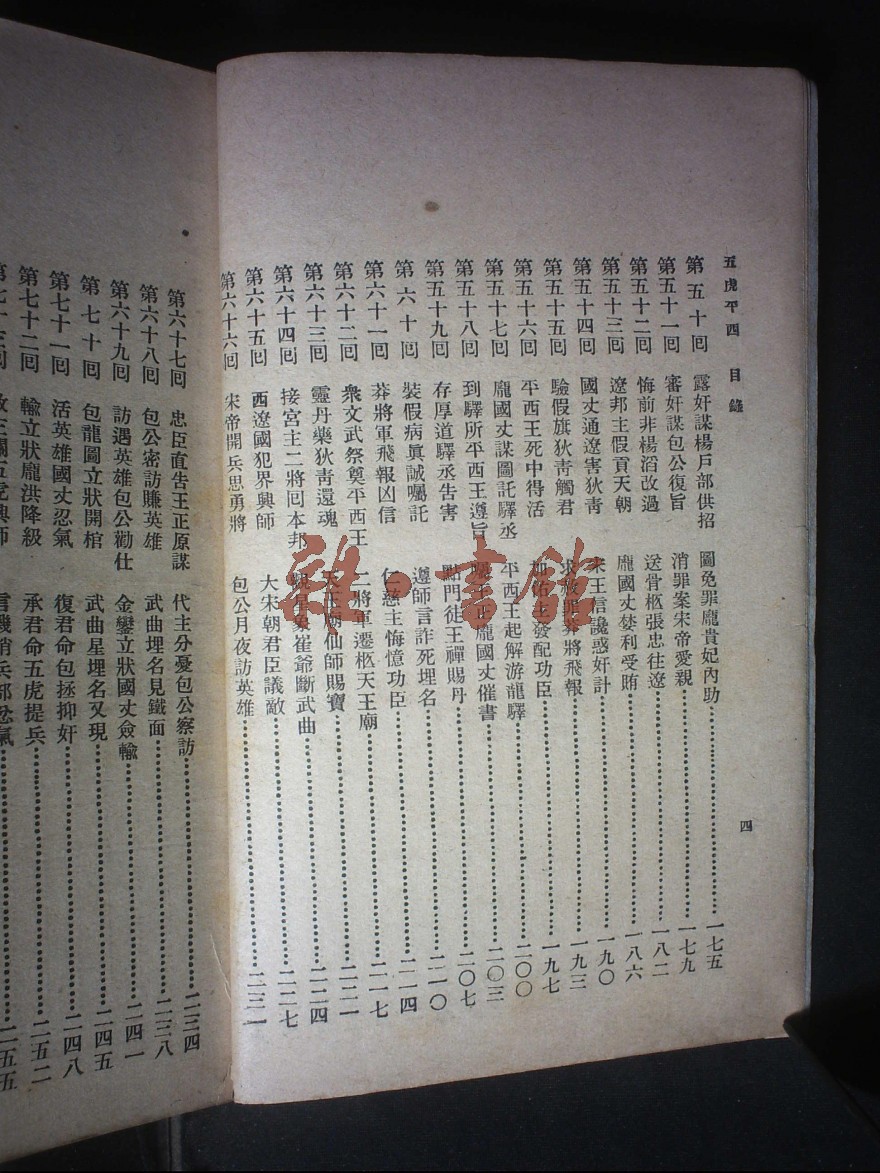 五虎平西 目錄
四
第五十回 露奸謀楊戶部供招 圖免罪龐貴妃內助 一七五
第五十一回 審奸謀包公復旨 消罪案宋帝愛親 一七九
第五十二回 悔前非楊滔改過 送骨柩張忠往遼 一八二
第五十三回 遼邦主假貢天朝 龐國丈焚利受賄 一八六
第五十四回 國丈通遼害狄青 宋王信讒惑奸計 一九〇
第五十五回 驗假旗狄青觸君 求赦罪莽將飛報 一九三
第五十六回 平西王死中得活 加佑主發配功臣 一九七
第五十七回 龐國丈謀圖託驛丞 平西王起解游龍驛 二〇〇
第五十八回 到驛所平西王遵旨 囑王正龐國丈催書 二〇三
第五十九回 存厚道驛丞告害 點門徒王禪賜丹 二〇七
第六十回 裝假病眞誠囑託 遵師言詐死埋名 二一〇
第六十一回 莽將軍飛報凶信 仁慈主悔憶功臣 二一四
第六十二回 衆文武祭奠平西王 二將軍遷柩天王廟 二一七
第六十三回 靈丹藥狄青還魂 天王廟仙師賜寶 二二一
第六十四回 接宮主二將回本邦 觀星象崔爺斷武曲 二二四
第六十五回 西遼國犯界興師 大宋朝君臣議敵 二二七
第六十六回 宋帝開兵思勇將 包公月夜訪英雄 二三一
第六十七回 忠臣直告王正原謀 代主分憂包公察訪 二三四
第六十八回 包公密訪賺英雄 武曲埋名見鐵面 二三八
第六十九回 訪遇英雄包公勸仕 金鑾立狀國丈僉輸 二四一
第七十回 包龍圖立狀開棺 武曲星埋名又現 二四五
第七十一回 活英雄國丈忍氣 復君命包拯抑奸 二四八
第七十二回 輸立狀龐洪降級 承君命五虎提兵 二五二
二五五
雜·書館